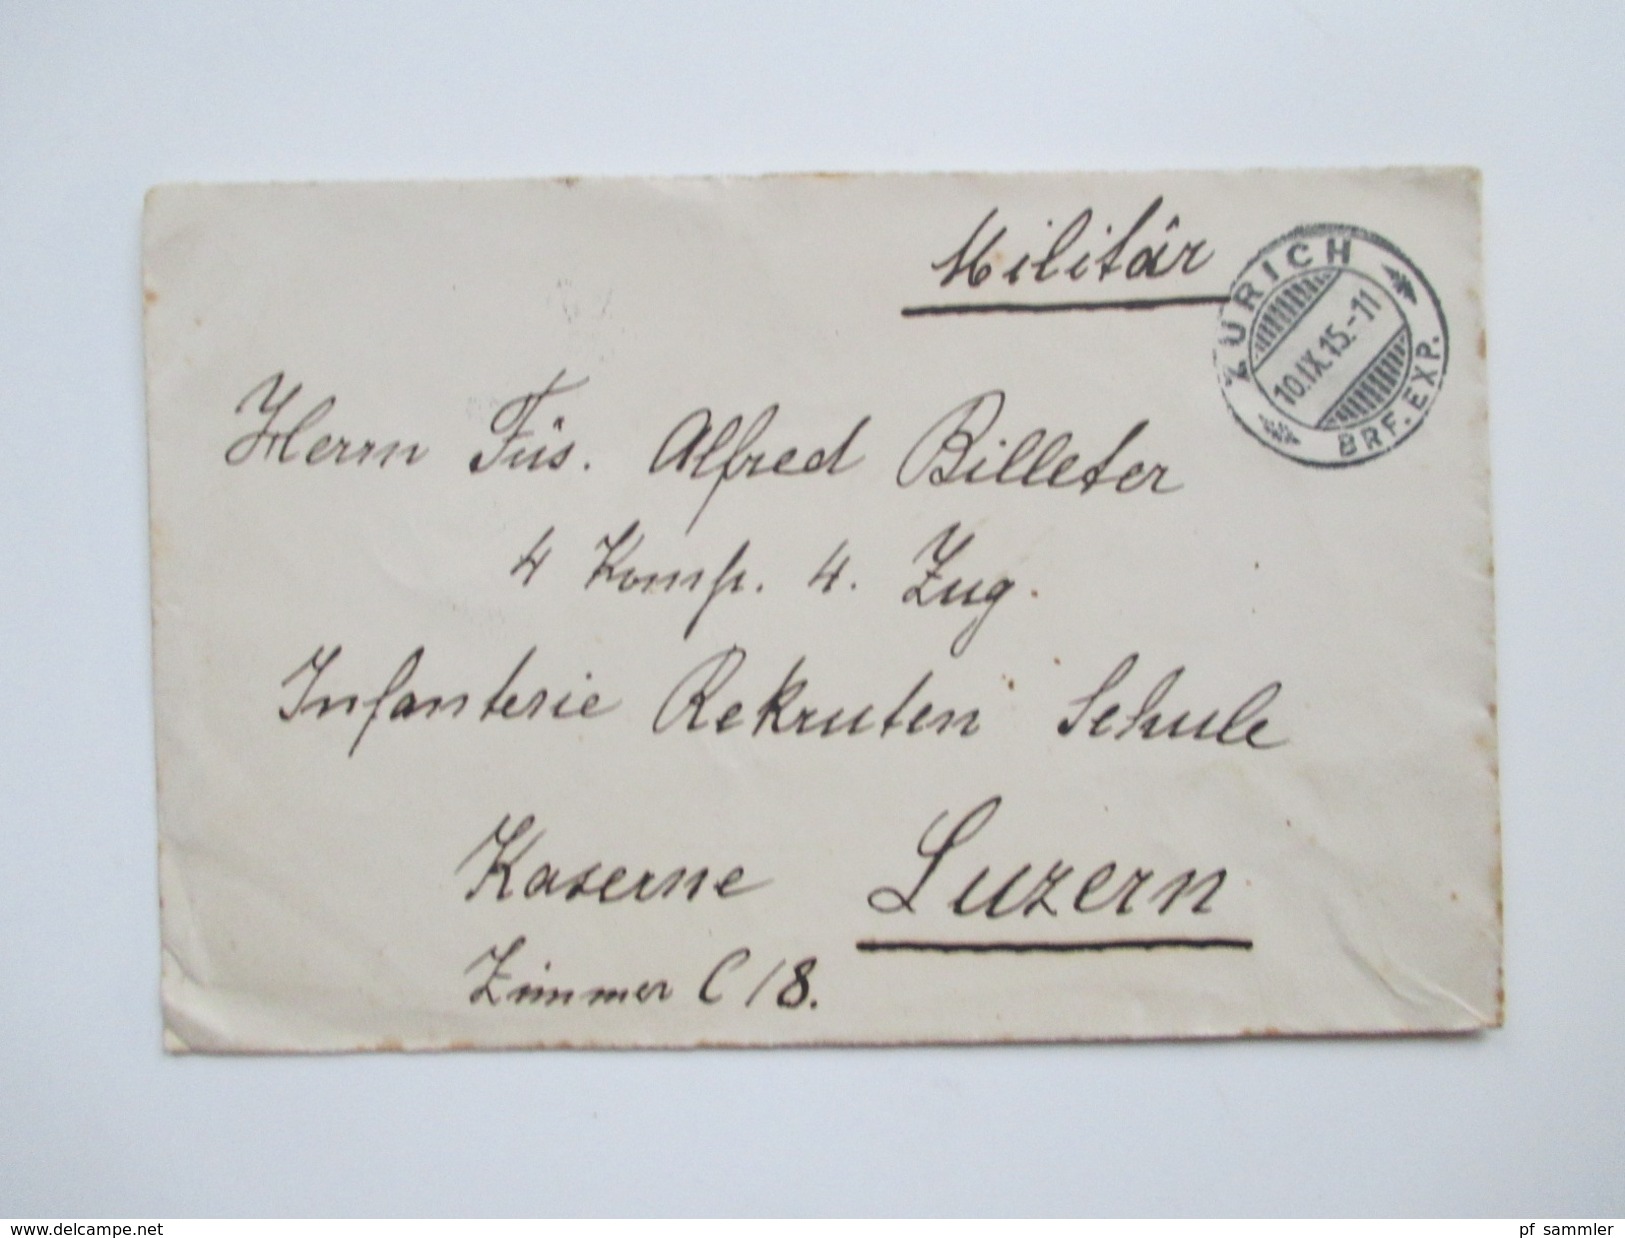 Militär
ZÜRICH
10.IX.15.-11
BRF. EXP.
Herrn Füs. Alfred Billeter
4 Komp. 4. Zug.
Infanterie Rekruten Schule
Kaserne Luzern
Zimmer C/8.
www.delcampe.net
pf_sammler